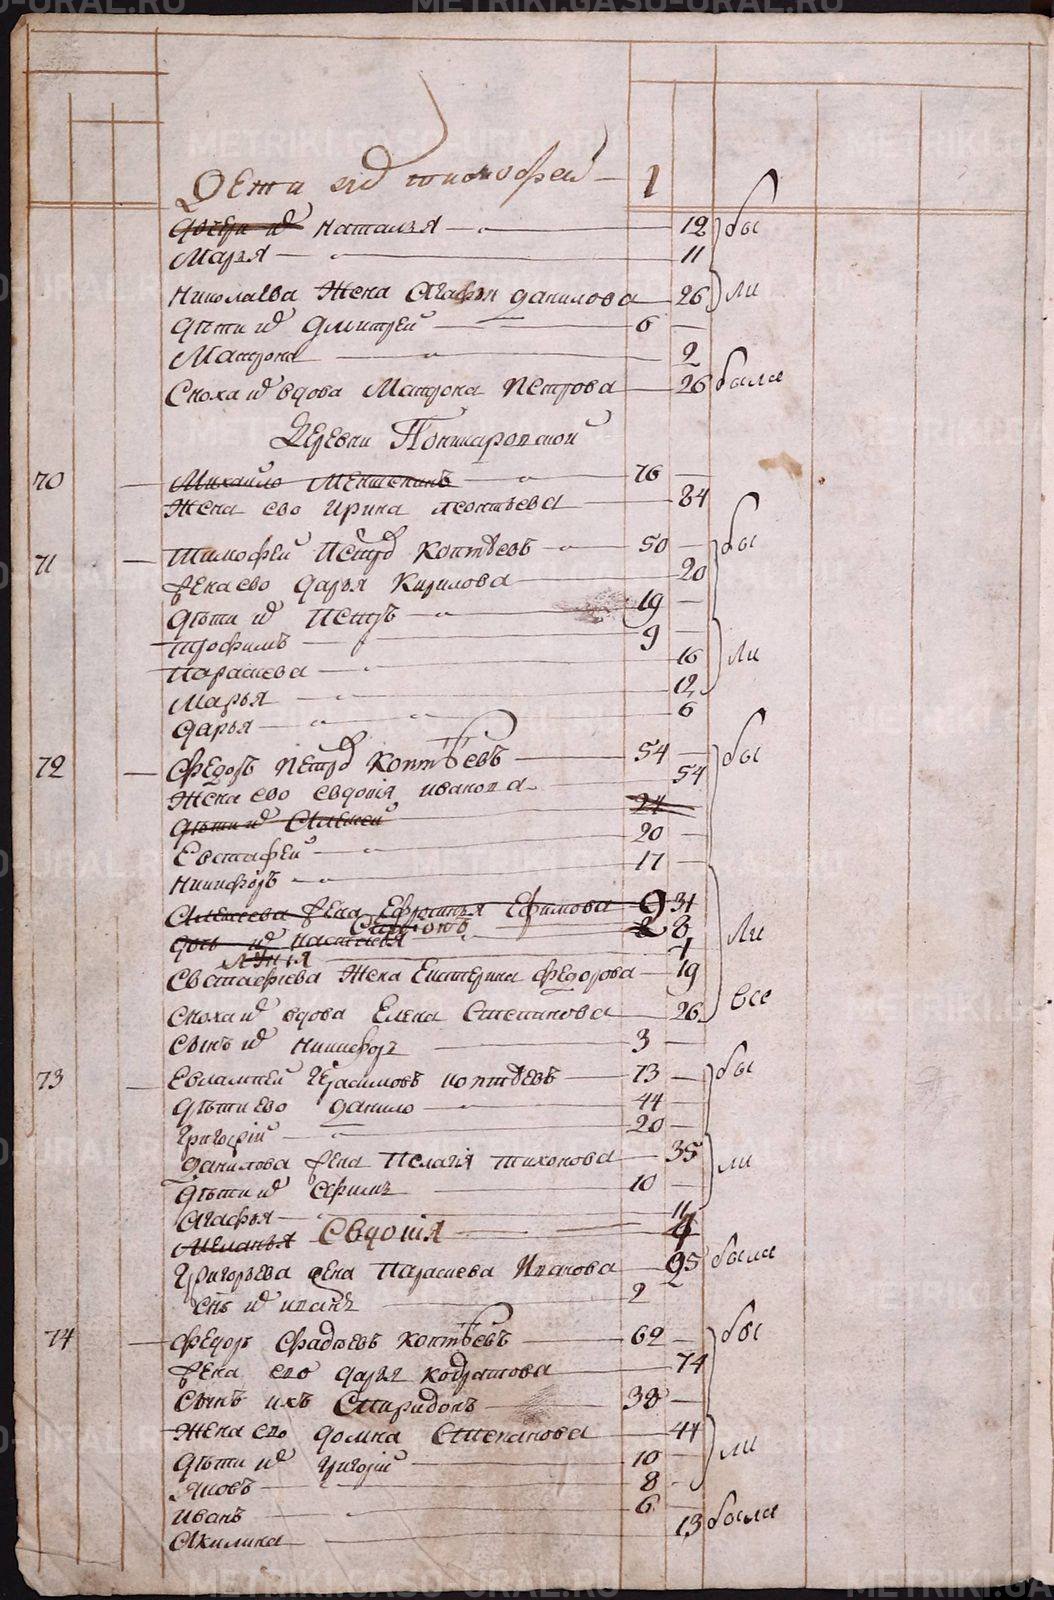 Дети их Тимофей — 1
Дочери их Наталья — 12 бы
Марья — 11
Николаева Жена Агафья Данилова 26 ли
Дѣти их Дмитрей — 6
Матрона — 2
Сноха их вдова Матрона Петрова 26 была
Деревни
70 Михайло — 76
Жена ево Ирина Леонтьева 84
71 Тимофей Петров Коптѣевъ 50 бы
Жена ево Дарья Кирилова 20
Дѣти их Петръ 19
Трофимъ 9
Парасковья 16 ли
Марья 12
Дарья 6
72 Федоръ Петров Коптѣевъ 54 бы
Жена ево Евдокия Иванова 54
Дѣти их Алексей 24
Евстафей 20
Никифоръ 17
Алексеева жена Ефросинья Ефимова 31
дочь их Настасья 3 ли
Евстафиева Жена Екатерина Федорова 19
Сноха их вдова Елена Степанова 26 все
Сынъ их Никифоръ 3
73 Евлампей Герасимовъ Коптѣевъ 73 бы
Дѣти ево Данило 44
Григорій 20
Данилова жена Пелагия Тихонова 35 ли
Дѣти их Ефимъ 10
Агафья 11
Меланья Евдокия 4
Григорьева жена Парасковья Иванова 25 была
Снъ их Иванъ 2
74 Федоръ Фадѣевъ Коптѣевъ 62 бы
жена ево Дарья Кодратова 74
Сынъ ихъ Спиридонъ 38
Жена ево Домна Степанова 44
Дѣти их Григорій 10 ли
Яковъ 8
Иванъ 6
Акилина 13 была
METRIKI.GASO-URAL.RU